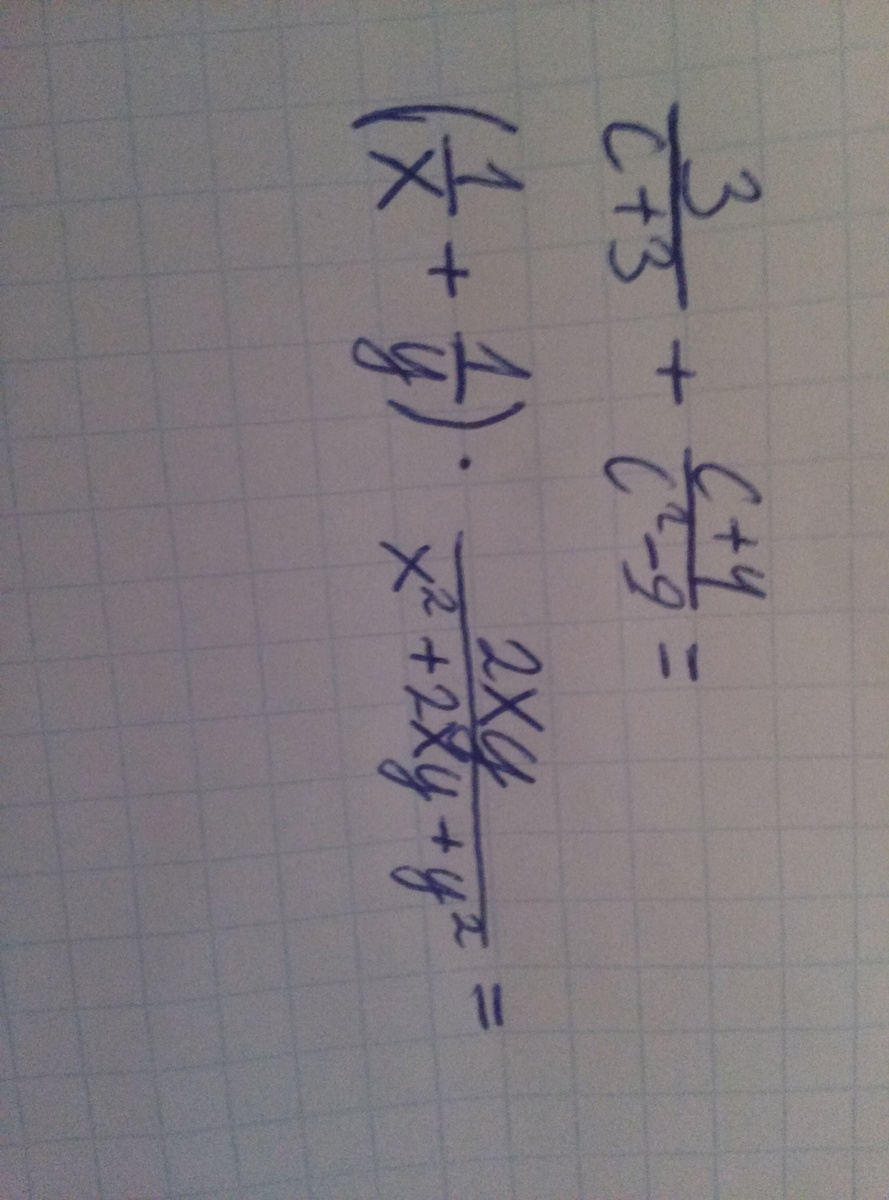 3/(c+3) + (c+4)/(c²-9) =
(1/x + 1/y) · 2xy/(x²+2xy+y²) =